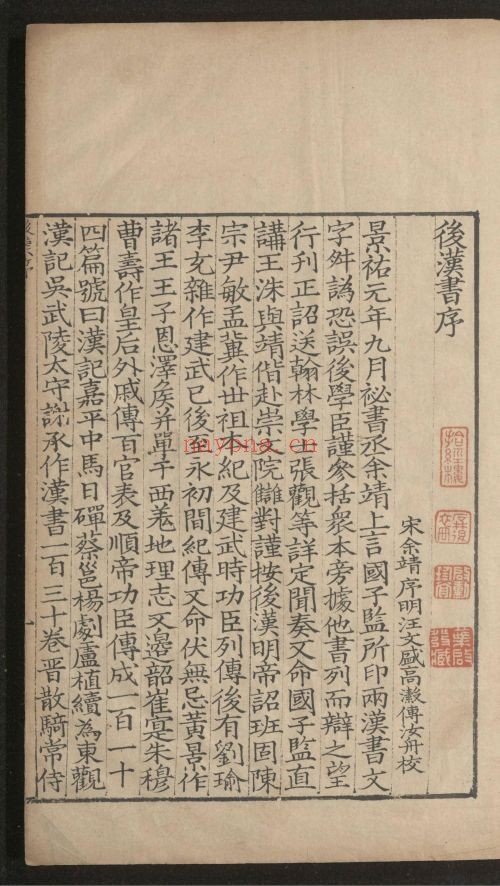 後漢書序
宋余靖序明汪文盛高瀔傅汝舟校
景祐元年九月祕書丞余靖上言國子監所印兩漢書文
字舛譌恐誤後學臣謹參括衆本旁據他書列而辯之望
行刊正詔送翰林學士張觀等詳定聞奏又命國子監直
講王洙與靖偕赴崇文院讎對謹按後漢明帝詔班固陳
宗尹敏孟冀作世祖本紀及建武時功臣列傳後有劉瑜
李充雜作建武已後至永初間紀傳又命伏無忌黃景作
諸王王子恩澤侯并單于西羌地理志又邊韶崔寔朱穆
曹壽作皇后外戚傳百官表及順帝功臣傳成一百一十
四篇號曰漢記嘉平中馬日磾蔡邕楊劇盧植續為東觀
漢記吳武陵太守謝承作漢書一百三十卷晉散騎常侍
nayona.cn